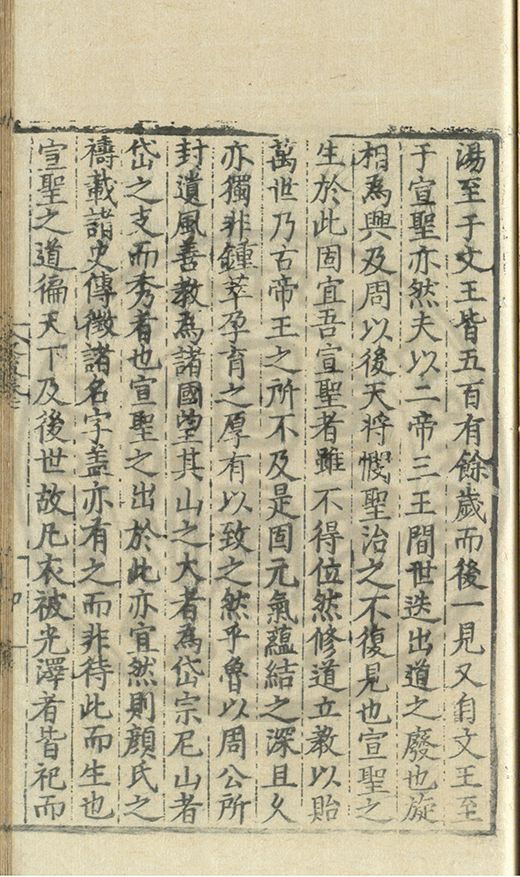 湯至于文王皆五百有餘歲而後一見又自文王至
于宣聖亦然夫以二帝三王間世迭出道之廢也旋
相為興及周以後天將憫聖治之不復見也宣聖之
生於此固宜吾宣聖者雖不得位然修道立教以貽
萬世乃古帝王之所不及是固元氣蘊結之深且久
亦獨非鍾萃孕育之厚有以致之然乎魯以周公所
封遺風善教為諸國望其山之大者為岱宗尼山者
岱之支而秀者也宣聖之出於此亦宜然則顔氏之
禱載諸史傳徵諸名字盖亦有之而非待此而生也
宣聖之道徧天下及後世故凡衣被光澤者皆祀而